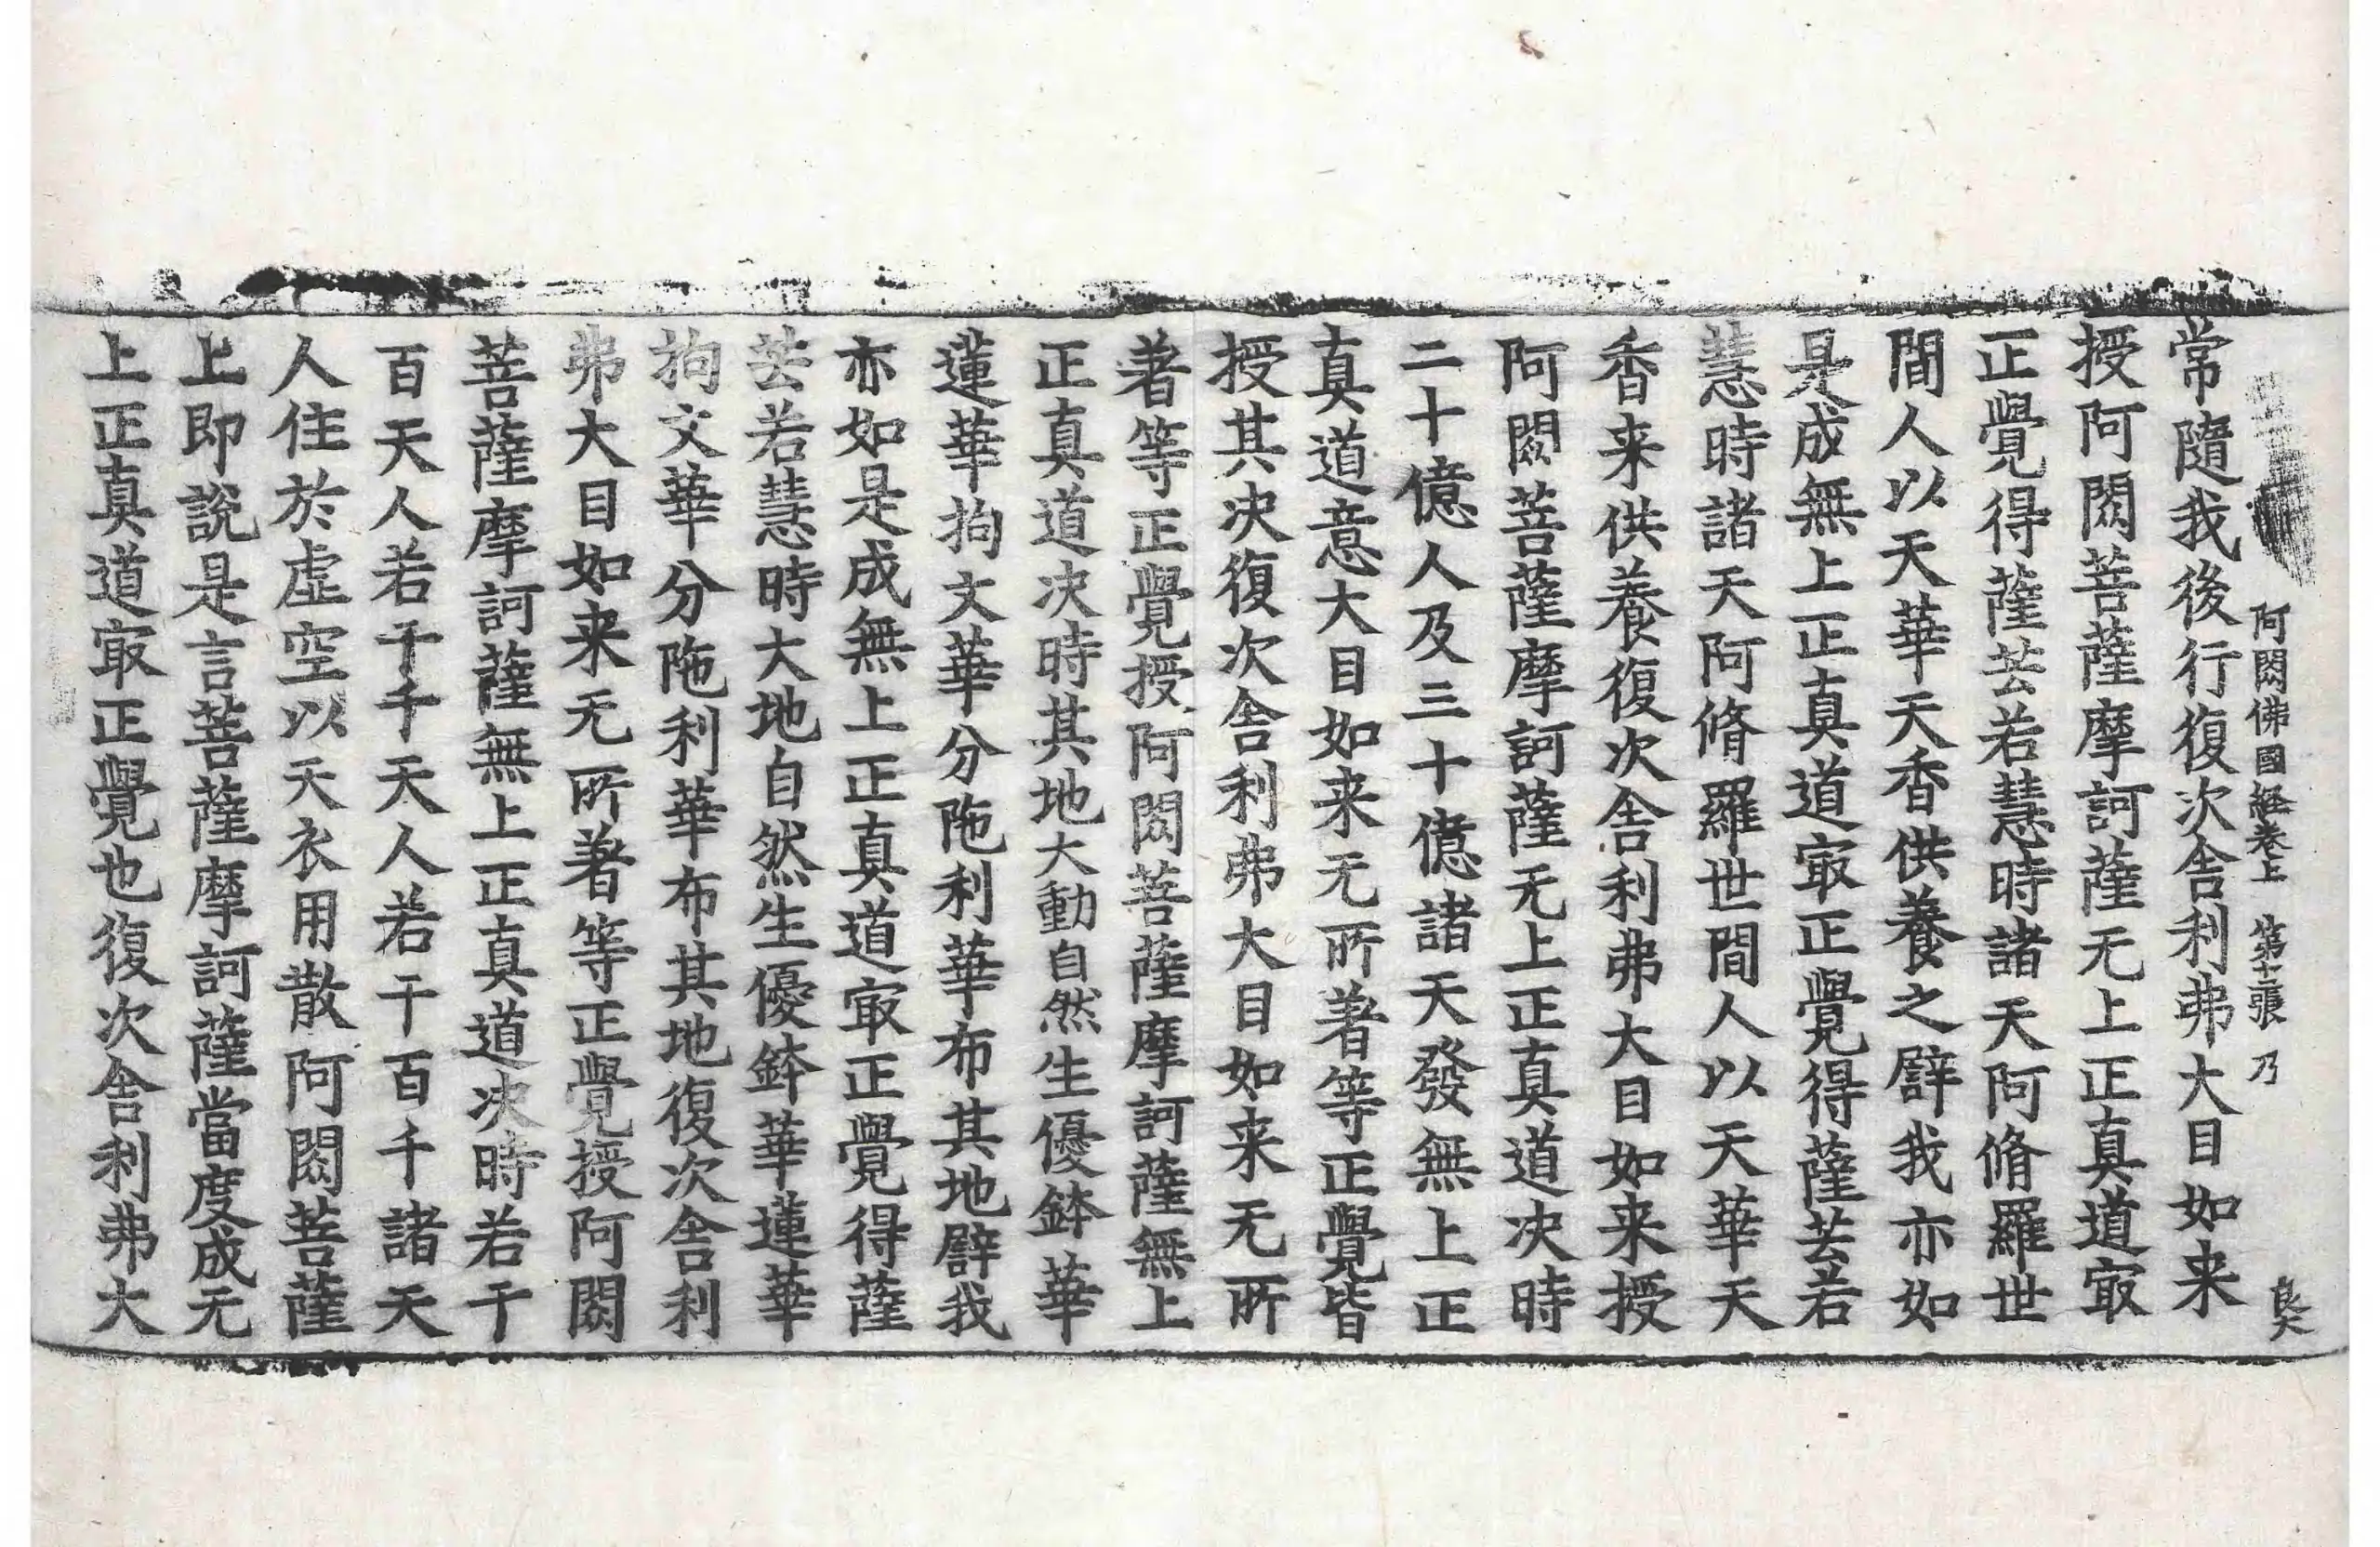 阿閦佛國経卷上 第十二張 乃 良大
常隨我後行復次舎利弗大目如来
授阿閦菩薩摩訶薩无上正真道㝡
正覺得薩芸若慧時諸天阿脩羅世
間人以天華天香供養之辟我亦如
是成無上正真道㝡正覺得薩芸若
慧時諸天阿脩羅世間人以天華天
香来供養復次舎利弗大目如来授
阿閦菩薩摩訶薩无上正真道决時
二十億人及三十億諸天發無上正
真道意大目如来无所著等正覺皆
授其决復次舎利弗大目如来无所
著等正覺授阿閦菩薩摩訶薩無上
正真道决時其地大動自然生優鉢華
蓮華拘文華分陁利華布其地辟我
亦如是成無上正真道㝡正覺得薩
芸若慧時大地自然生優鉢華蓮華
拘文華分陁利華布其地復次舎利
弗大目如来无所著等正覺授阿閦
菩薩摩訶薩無上正真道决時若干
百天人若干千天人若干百千諸天
人住於虛空以天衣用散阿閦菩薩
上即說是言菩薩摩訶薩當度成无
上正真道㝡正覺也復次舎利弗大